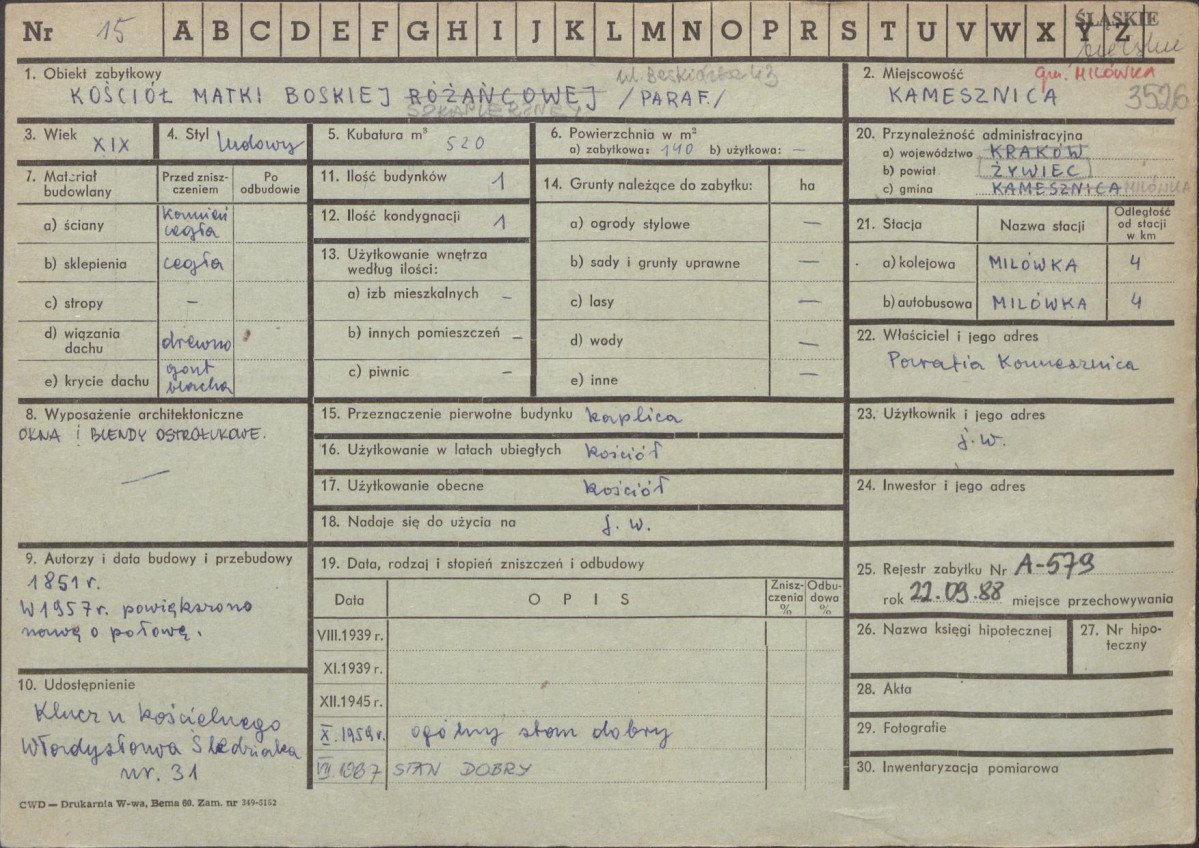 Nr 15 A B C D E F G H I J K L M N O P R S T U V W X Y Z
ŚLĄSKIE
bielskie
1. Obiekt zabytkowy
ul. Beskidzka 43
KOŚCIÓŁ MATKI BOSKIEJ RÓŻAŃCOWEJ /PARAF./
SZKAPLERZNEJ
2. Miejscowość
gm. MILÓWKA
KAMESZNICA
3526
3. Wiek XIX
4. Styl ludowy
5. Kubatura m³ 520
6. Powierzchnia w m²
a) zabytkowa: 140 b) użytkowa: —
7. Materiał budowlany
Przed zniszczeniem
Po odbudowie
a) ściany kamień cegła
b) sklepienia cegła
c) stropy —
d) wiązania dachu drewno
e) krycie dachu gont blacha
8. Wyposażenie architektoniczne
OKNA I BLENDY OSTROŁUKOWE.
—
9. Autorzy i data budowy i przebudowy
1851 r.
W 1957 r. powiększono
nawę o połowę.
10. Udostępnienie
Klucz u kościelnego
Władysława Śledziaka
nr. 31
11. Ilość budynków 1
12. Ilość kondygnacji 1
13. Użytkowanie wnętrza
według ilości:
a) izb mieszkalnych —
b) innych pomieszczeń —
c) piwnic —
14. Grunty należące do zabytku: ha
a) ogrody stylowe —
b) sady i grunty uprawne —
c) lasy —
d) wody —
e) inne —
15. Przeznaczenie pierwotne budynku kaplica
16. Użytkowanie w latach ubiegłych kościół
17. Użytkowanie obecne kościół
18. Nadaje się do użycia na j. w.
19. Data, rodzaj i stopień zniszczeń i odbudowy
Data OPIS Zniszczenia % Odbudowa %
VIII.1939 r.
XI.1939 r.
XII.1945 r.
X.1959 r. ogólny stan dobry
VII 1987 STAN DOBRY
20. Przynależność administracyjna
a) województwo KRAKÓW
b) powiat ŻYWIEC
c) gmina KAMESZNICA MILÓWKA
21. Stacja Nazwa stacji Odległość od stacji w km
a) kolejowa MILÓWKA 4
b) autobusowa MILÓWKA 4
22. Właściciel i jego adres
Parafia Kamesznica
23. Użytkownik i jego adres
j. w.
24. Inwestor i jego adres
25. Rejestr zabytku Nr A-579
rok 22.09.88 miejsce przechowywania
26. Nazwa księgi hipotecznej
27. Nr hipoteczny
28. Akta
29. Fotografie
30. Inwentaryzacja pomiarowa
CWD — Drukarnia W-wa, Bema 60. Zam. nr 349-5152